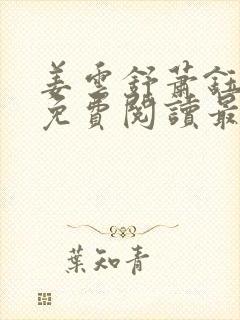 姜雲舒蕭鈺
免費閱讀最
葉知青